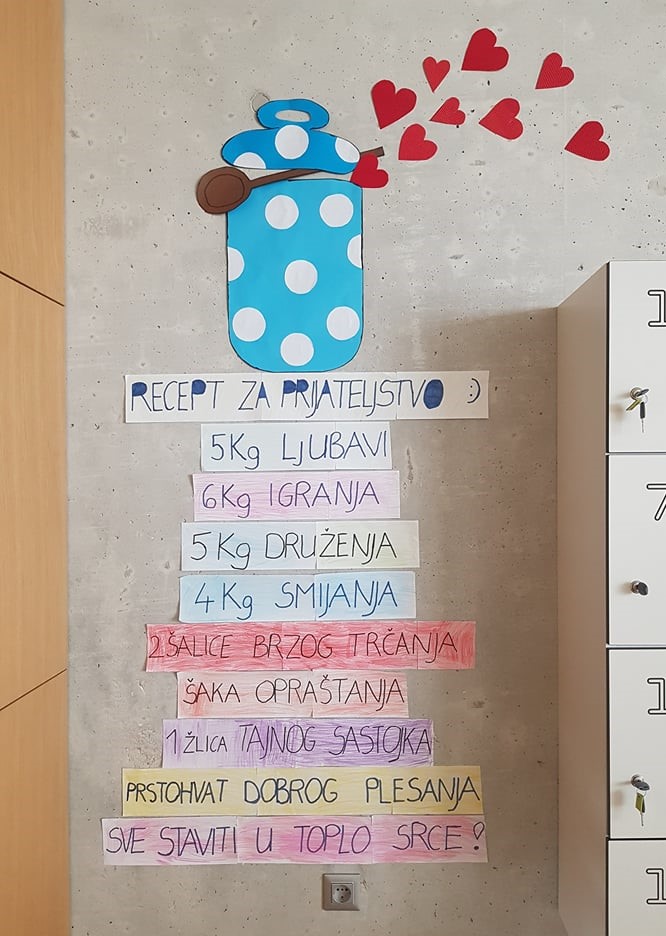 RECEPT ZA PRIJATELJSTVO :)
5Kg LJUBAVI
6Kg IGRANJA
5Kg DRUŽENJA
4Kg SMIJANJA
2 ŠALICE BRZOG TRČANJA
ŠAKA OPRAŠTANJA
1 ŽLICA TAJNOG SASTOJKA
PRSTOHVAT DOBROG PLESANJA
SVE STAVITI U TOPLO SRCE!